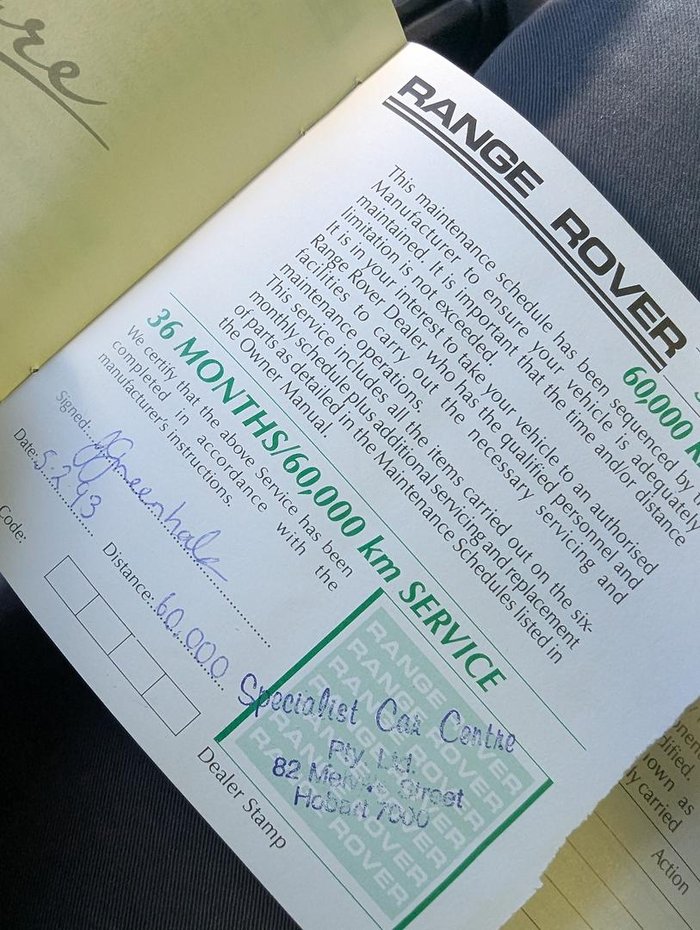 re
RANGE ROVER
60,000 k
This maintenance schedule has been sequenced by
Manufacturer to ensure your vehicle is adequately
maintained. It is important that the time and/or distance
limitation is not exceeded.
It is in your interest to take your vehicle to an authorised
Range Rover Dealer who has the qualified personnel and
facilities to carry out the necessary servicing and
maintenance operations.
This service includes all the items carried out on the six-
monthly schedule plus additional servicing and replacement
of parts as detailed in the Maintenance Schedules listed in
the Owner Manual.
36 MONTHS/60,000 km SERVICE
We certify that the above Service has been
completed in accordance with the
manufacturer's instructions.
Signed:
Date: 5.2.93
Distance: 60,000
Code:
RANGE ROVER
Specialist Car Centre
Pty. Ltd.
82 Melville Street
Hobart 7000
Dealer Stamp
lown as
ly carried
Action